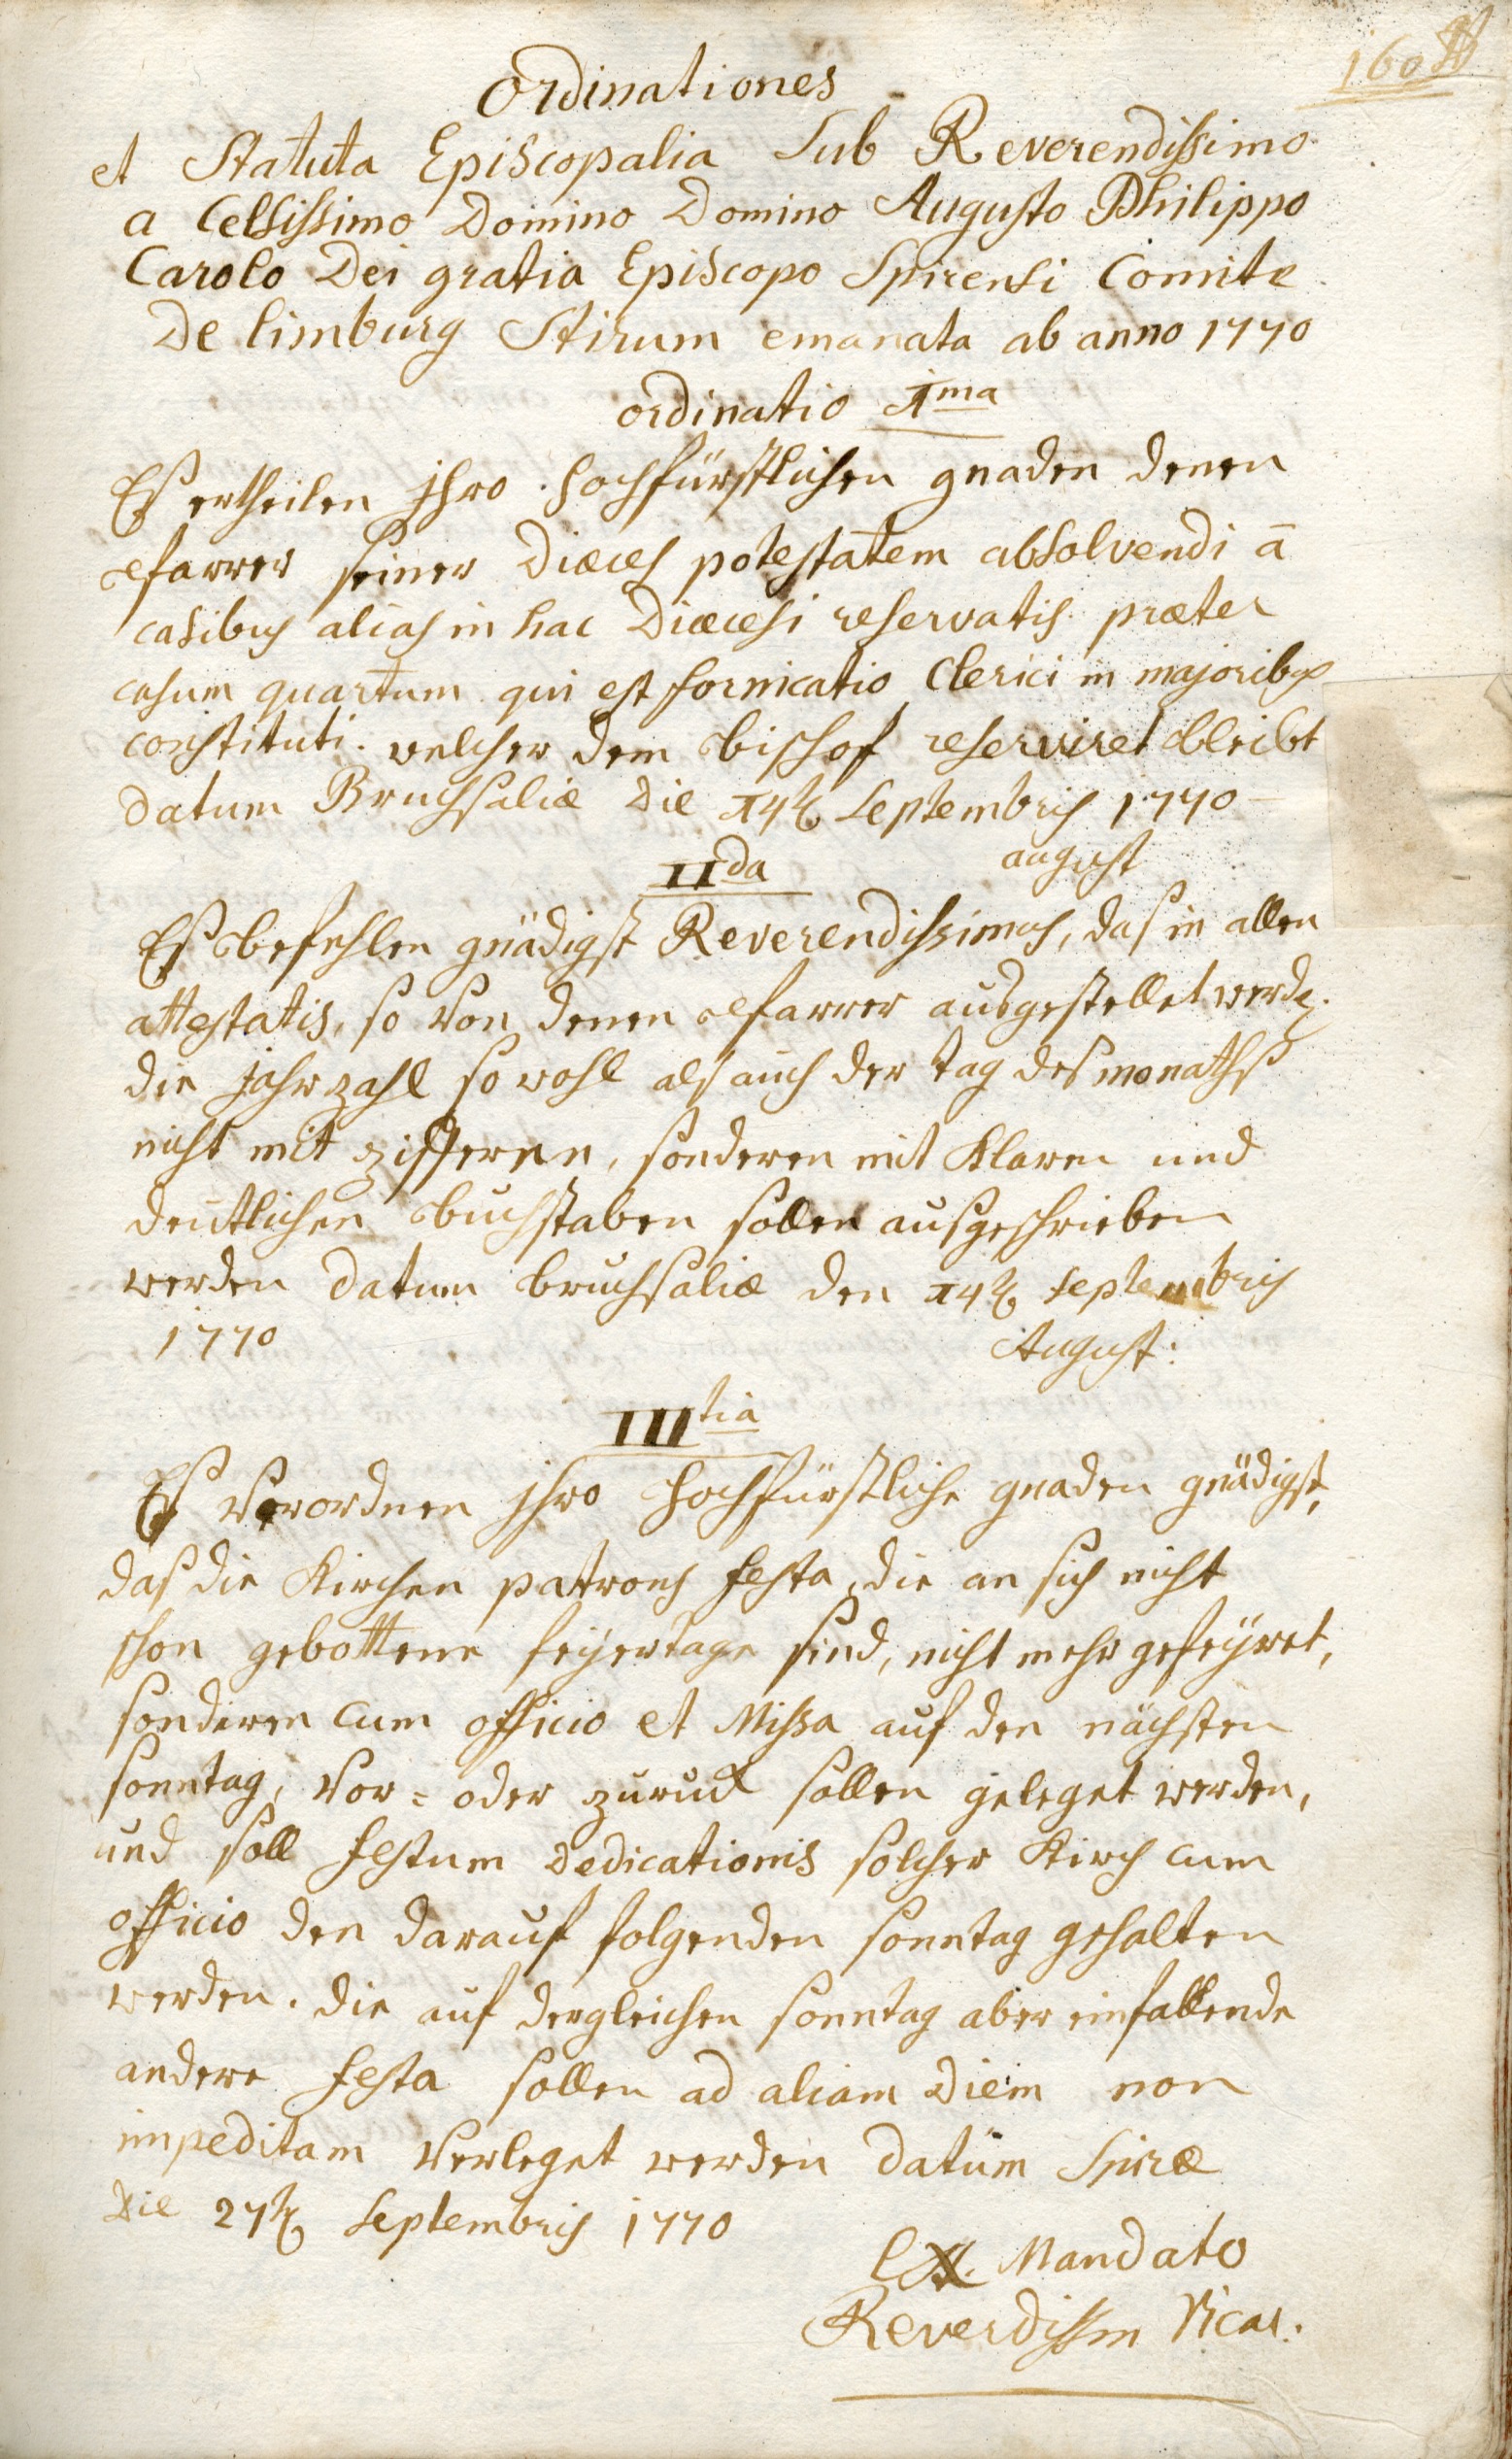 160
Ordinationes
et Statuta Episcopalia Sub Reverendissimo
a Celsissimo Domino Domino Augusto Philippo
Carolo Dei gratia Episcopo Spirensi Comite
De limburg Stirum emanata ab anno 1770
ordinatio Ima
Es ertheilen jhro hochfürstlichen gnaden denen
Pfarrer seiner Diœces potestatem absolvendi ā
casibus alias in hac Diœcesi reservatis præter
casum quartum qui est fornicatio Clerici in majoribus
constituti. welcher dem bischof reserviret bleibt
Datum Bruchsaliæ Die 14t Septembris 1770
august
IIda
Es befehlen gnädigst Reverendissimus, das in allen
attestatis, so von denen Pfarrer ausgestellet werden.
die jahrzahl so wohl als auch der tag des monaths
nicht mit zifferen, sonderen mit klaren und
deutlichen buchstaben sollen ausgeschrieben
werden Datum bruchsaliæ den 14t Septembris
1770
August:
IIItia
Es verordnen jhro hochfürstliche gnaden gnädigst,
das die Kirchen patrons festa, die an sich nicht
schon gebottene feyertage sind, nicht mehr gefeyret,
sonderen cum officio et Missa auf den nächsten
sonntag, vor- oder zuruck sollen geleget werden,
und soll festum Dedicationis solcher Kirch cum
officio den darauf folgenden sonntag gehalten
werden. die auf dergleichen sonntag aber einfallende
andere festa sollen ad aliam Diem non
impeditam verleget werden Datum Spiræ
Die 27t Septembris 1770
Ex. Mandato
Reverdissm Vicar.